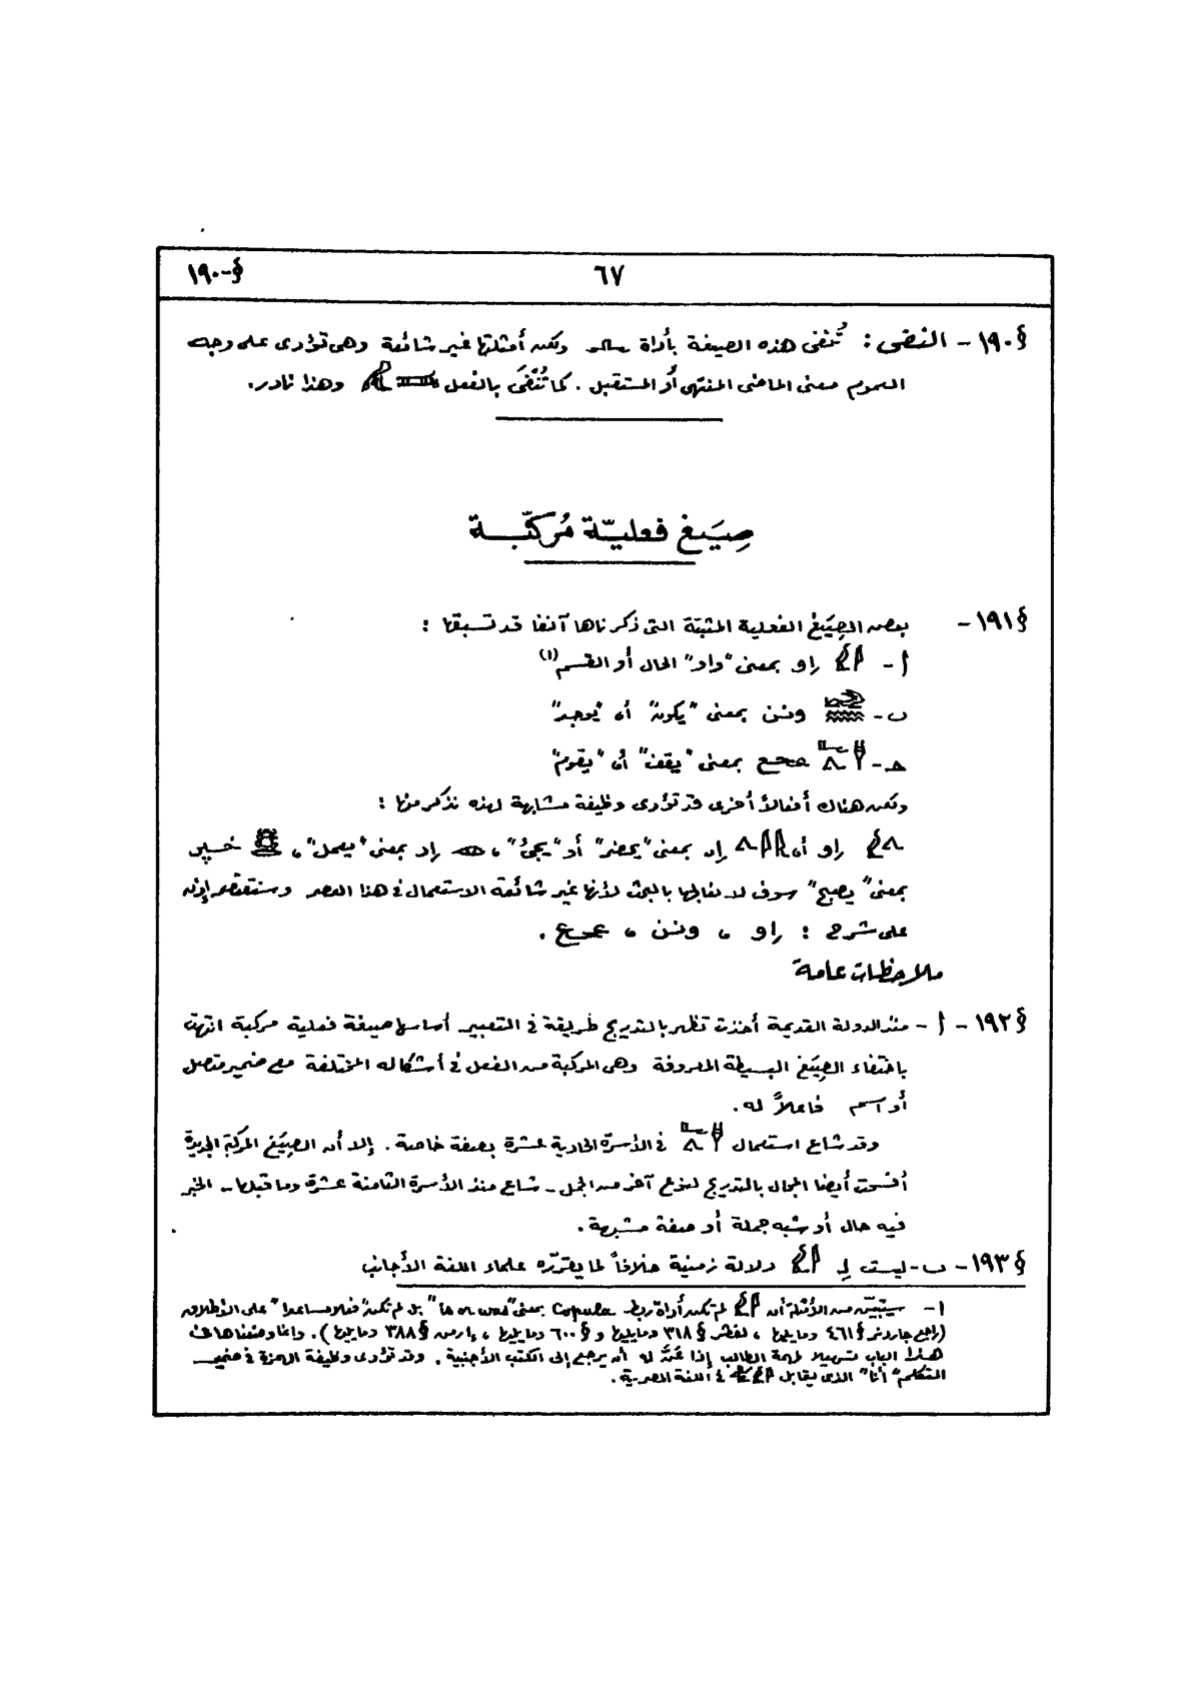 §-١٩٠ ٦٧
§١٩٠- النفى : تُنفى هذه الصيغة بأداة ولكن أمثلتها غير شائعة وهى تؤدى على وجه
العموم معنى الماضى المنتهى أو المستقبل . كما تُنْفَى بالفعل وهذا نادر.
صِيَغ فعليّة مُركّبة
§١٩١- بعض الصِيَغ الفعلية المثبتة التى ذكرناها آنفا قد تسبقها :
أ- إو بمعنى "واو" الحال أو القسم (١)
ب- ونن بمعنى "يكون" أو "يوجد"
ج- عحع بمعنى "يقف" أو "يقوم"
ولكن هناك أفعالاً أخرى قد تؤدى وظيفة مشابهة لهذه نذكر منها :
إو أو إى بمعنى "يحضر" أو "يجئ" ، إر بمعنى "يعمل" ، خپر
بمعنى "يصبح" سوف لا نعالجها بالبحث لأنها غير شائعة الاستعمال فى هذا العصر وسنقتصر إذن
على شرح : إو ، ونن ، عحع .
ملاحظات عامة
§١٩٢- أ- منذ الدولة القديمة أخذت تظهر بالتدريج طريقة فى التعبير أساسها صيغة فعلية مركبة انتهت
باختفاء الصِيَغ البسيطة المعروفة وهى المركبة من الفعل فى أشكاله المختلفة مع ضمير متصل
أو اسم فاعلاً له .
وقد شاع استعمال فى الأسرة الحادية عشرة بصفة خاصة . إلا أن الصِيَغ المركبة الجديدة
أفسحت أيضا المجال بالتدريج لنوع آخر من الجمل - شاع منذ الأسرة الثامنة عشرة وما قبلها - الخبر
فيه حال أو شبه جملة أو صفة مشبهة .
§١٩٣- ب- ليست لِـ دلالة زمنية خلافاً لما يقرّره علماء اللغة الأجانب
١- سيتبيّن من الأمثلة أن لم تكن أداة ربط Copula بمعنى "is or was" بل لم تكن "فعلا مساعدا" على الإطلاق
(راجع جاردنر §٤٦١ وما يليها ، لفڤر §٣١٨ وما يليها و §٦٠٠ وما يليها ، إرمن §٣٨٨ وما يليها ) . وإنما وضعناها فى
هذا الباب تسهيلا لمهمة الطالب إذا عَنَّ له أن يرجع إلى الكتب الأجنبية . وقد تؤدى وظيفة الهمزة فى ضمير
المتكلم "أنا" الذى يقابل فى اللغة المصرية .